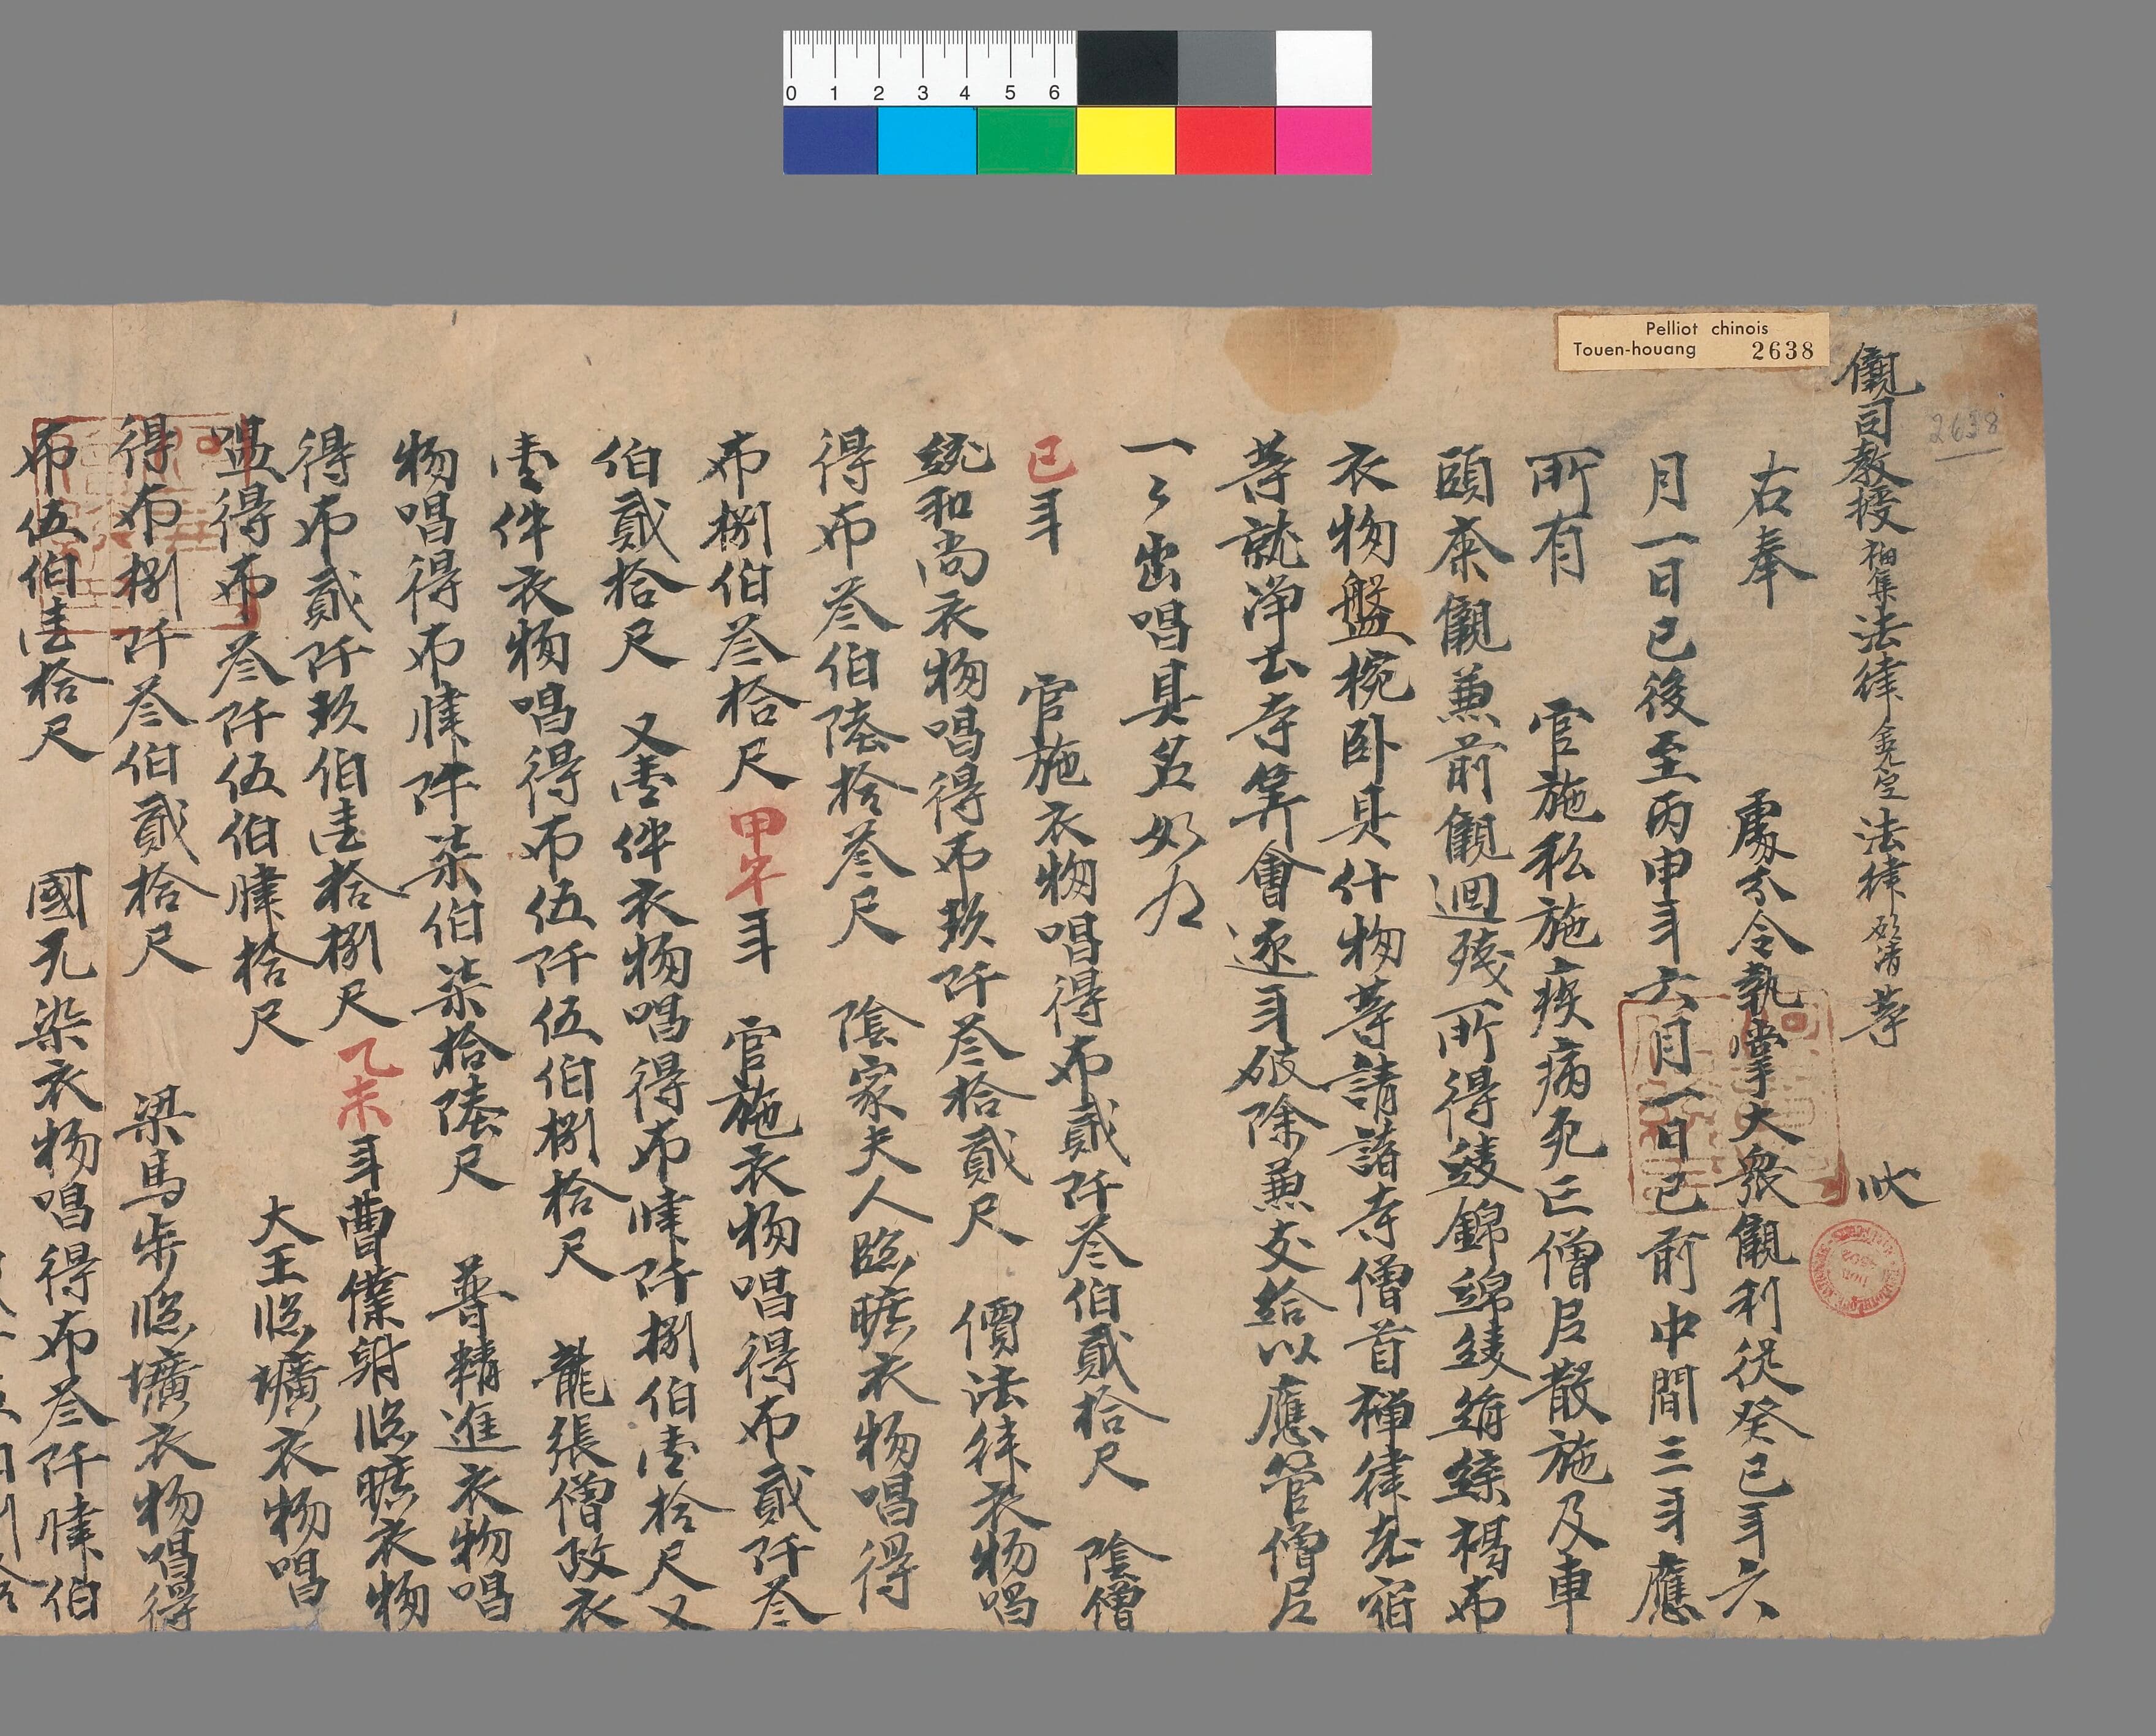 Pelliot chinois
Touen-houang 2638
2638
0 1 2 3 4 5 6
儭司教授福集法律金光定法律願清等 狀
右奉 處分令執掌大衆儭利從癸巳年六
月一日已後至丙申年六月一日已前中間三年應
所有 官施私施疾病死亡僧尼散施及車
頭齋儭兼前儭迴殘所得綾錦綿綾絹緤褐布
衣物盤椀卧具什物等請諸寺僧首禪律老宿
等就淨土寺筭會逐年破除兼支給以應管僧尼
一々出唱具名如左
巳年 官施衣物唱得布貳阡叁伯貳拾尺 陰僧
統和尚衣物唱得布玖阡叁拾貳尺 價法律衣物唱
得布叁伯陸拾叁尺 陰家夫人臨曠衣物唱得
布捌伯叁拾尺 甲午年 官施衣物唱得布貳阡叁
伯貳拾尺 又壹件衣物唱得布肆阡捌伯壹拾尺又
壹件衣物唱得布伍阡伍伯捌拾尺 龍張僧政衣
物唱得布肆阡柒伯柒拾陸尺 普精進衣物唱
得布貳阡玖伯壹拾捌尺 乙未年曹僕射臨曠衣物
唱得布叁阡伍伯肆拾尺 大王臨壙衣物唱
得布捌阡叁伯貳拾尺 梁馬步臨壙衣物唱得
布伍伯壹拾尺 國無染衣物唱得布叁阡肆伯